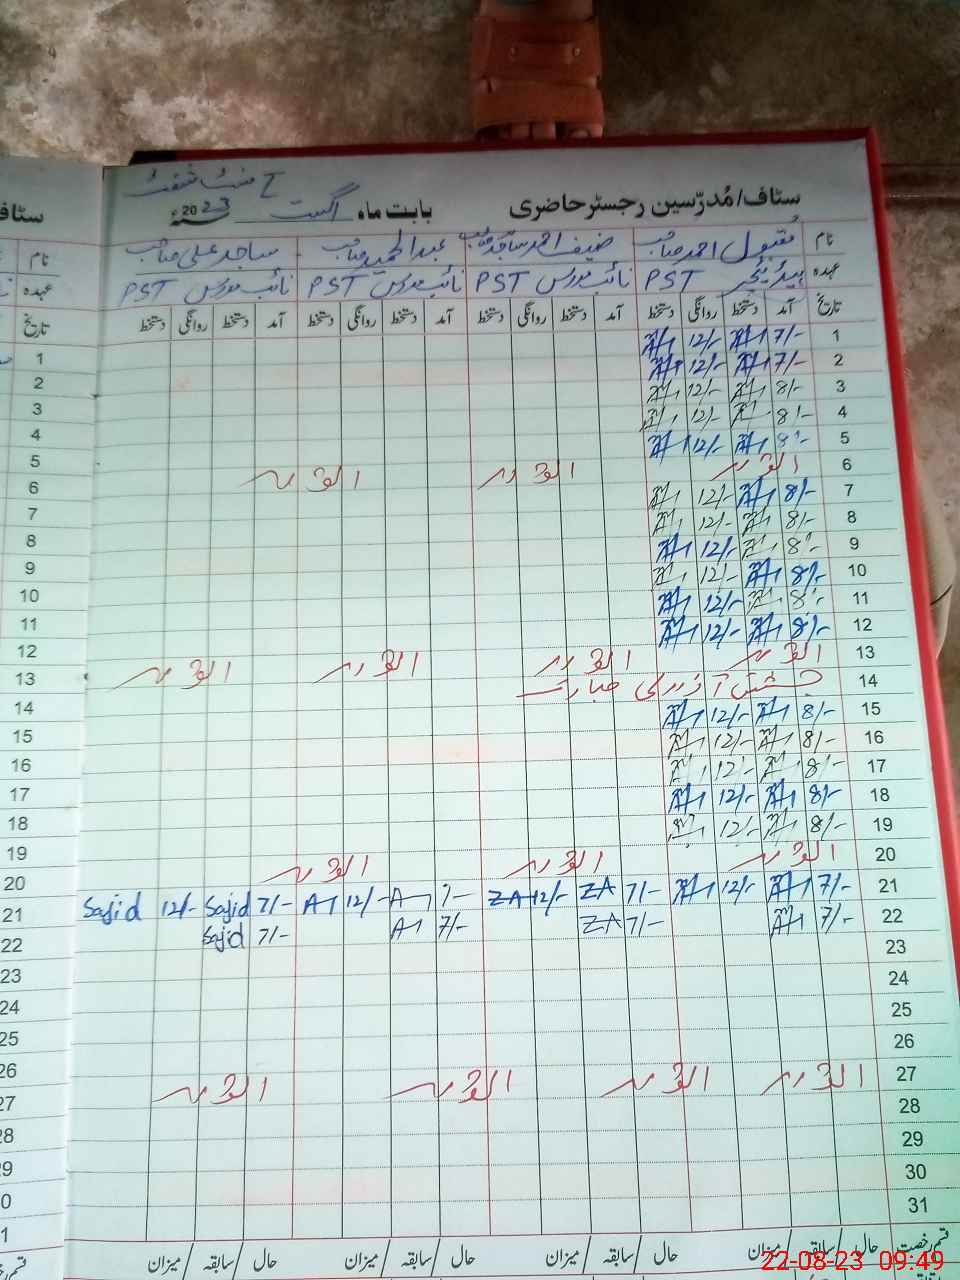 سٹاف/مُدرّسین رجسٹر حاضری بابت ماہ اگست 2023ء
نام مقبول احمد صاحب عبدالحمید صاحب ساجد علی صاحب
عہدہ ہیڈ ٹیچر PST نائب مدرس PST نائب مدرس PST نائب مدرس PST
تاریخ آمد دستخط روانگی دستخط آمد دستخط روانگی دستخط آمد دستخط روانگی دستخط آمد دستخط روانگی دستخط
1 7/- 12/-
2 7/- 12/-
3 8/- 12/-
4 8/- 12/-
5 8/- 12/-
6 اتوار اتوار اتوار
7 8/- 12/-
8 8/- 12/-
9 8/- 12/-
10 8/- 12/-
11 8/- 12/-
12 8/- 12/-
13 اتوار اتوار اتوار اتوار
14 جشن آزادی مبارک
15 8/- 12/-
16 8/- 12/-
17 8/- 12/-
18 8/- 12/-
19 8/- 12/-
20 اتوار اتوار اتوار
21 7/- 12/- 7/- ZA 12/- ZA 12/- 7/- Sajid 12/- Sajid
22 7/- 7/- ZA 7/- 7/- Sajid
23
24
25
26
27 اتوار اتوار اتوار اتوار
28
29
30
31
قسم رخصت حال سابقہ حال سابقہ میزان حال سابقہ میزان
سٹاف
نام
عہدہ
تاریخ
1
2
3
4
5
6
7
8
9
10
11
12
13
14
15
16
17
18
19
20
21
22
23
24
25
26
27
28
29
22-08-23 09:49